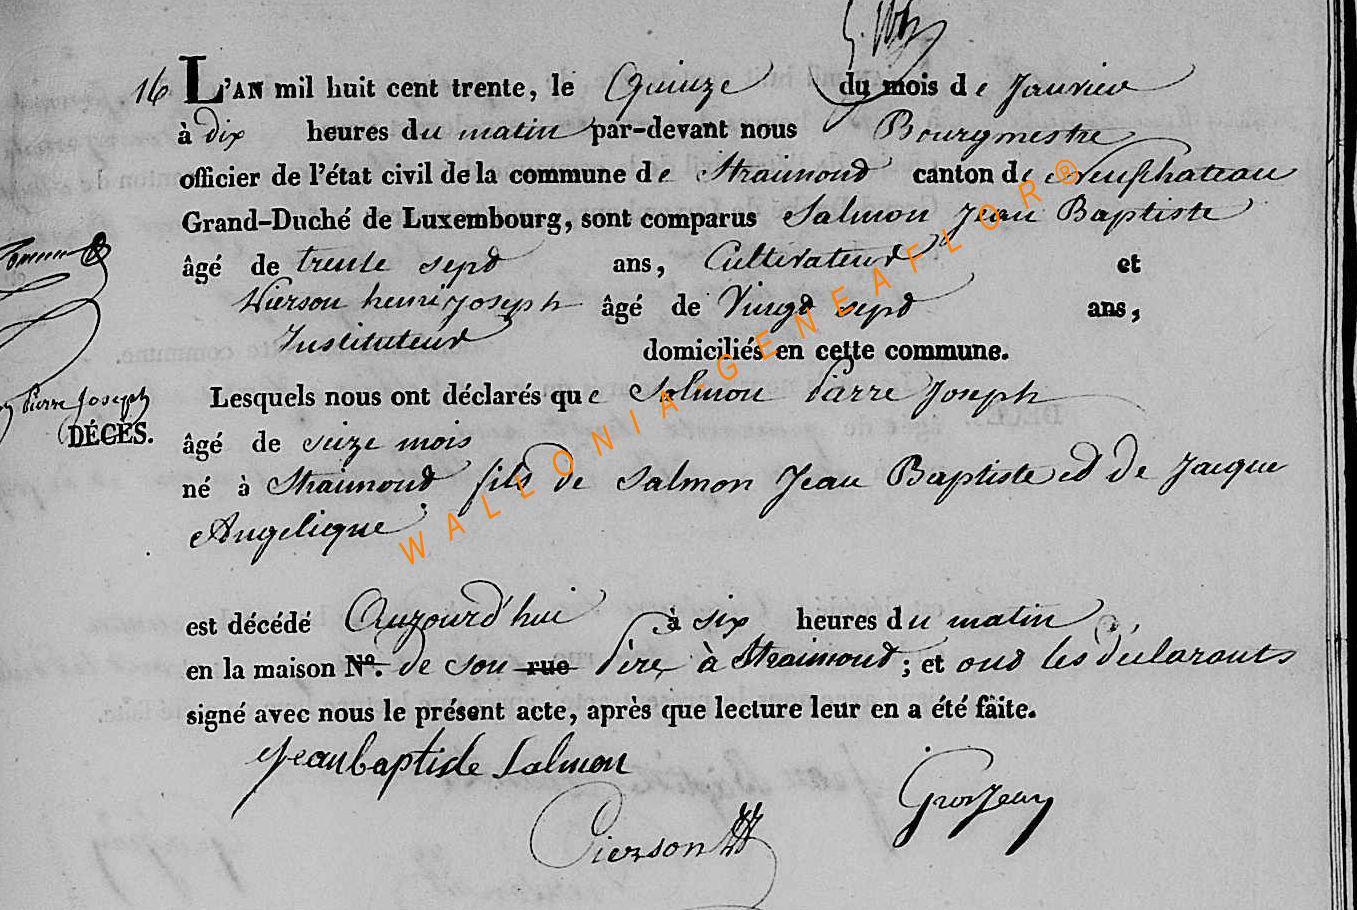 16 L'AN mil huit cent trente, le Quinze du mois de Janvier
à dix heures du matin par-devant nous Bourgmestre
officier de l'état civil de la commune de Straimond canton de Neufchateau
Grand-Duché de Luxembourg, sont comparus Salmon Jean Baptiste
âgé de trente sept ans, Cultivateur et
Pierson henri joseph âgé de Vingt sept ans,
Instituteur domiciliés en cette commune.
Lesquels nous ont déclarés que Salmon Pierre Joseph
Pierre Joseph
DÉCÈS. âgé de seize mois
né à Straimond fils de Salmon Jean Baptiste et De Jacque
Angelique
est décédé Aujourd'hui à six heures du matin
en la maison N°. de son rue Père, à Straimond; et ont les déclarants
signé avec nous le présent acte, après que lecture leur en a été faite.
Jean baptiste Salmon
GrosJean
Pierson
WALLONIA-GENEAFLOR®